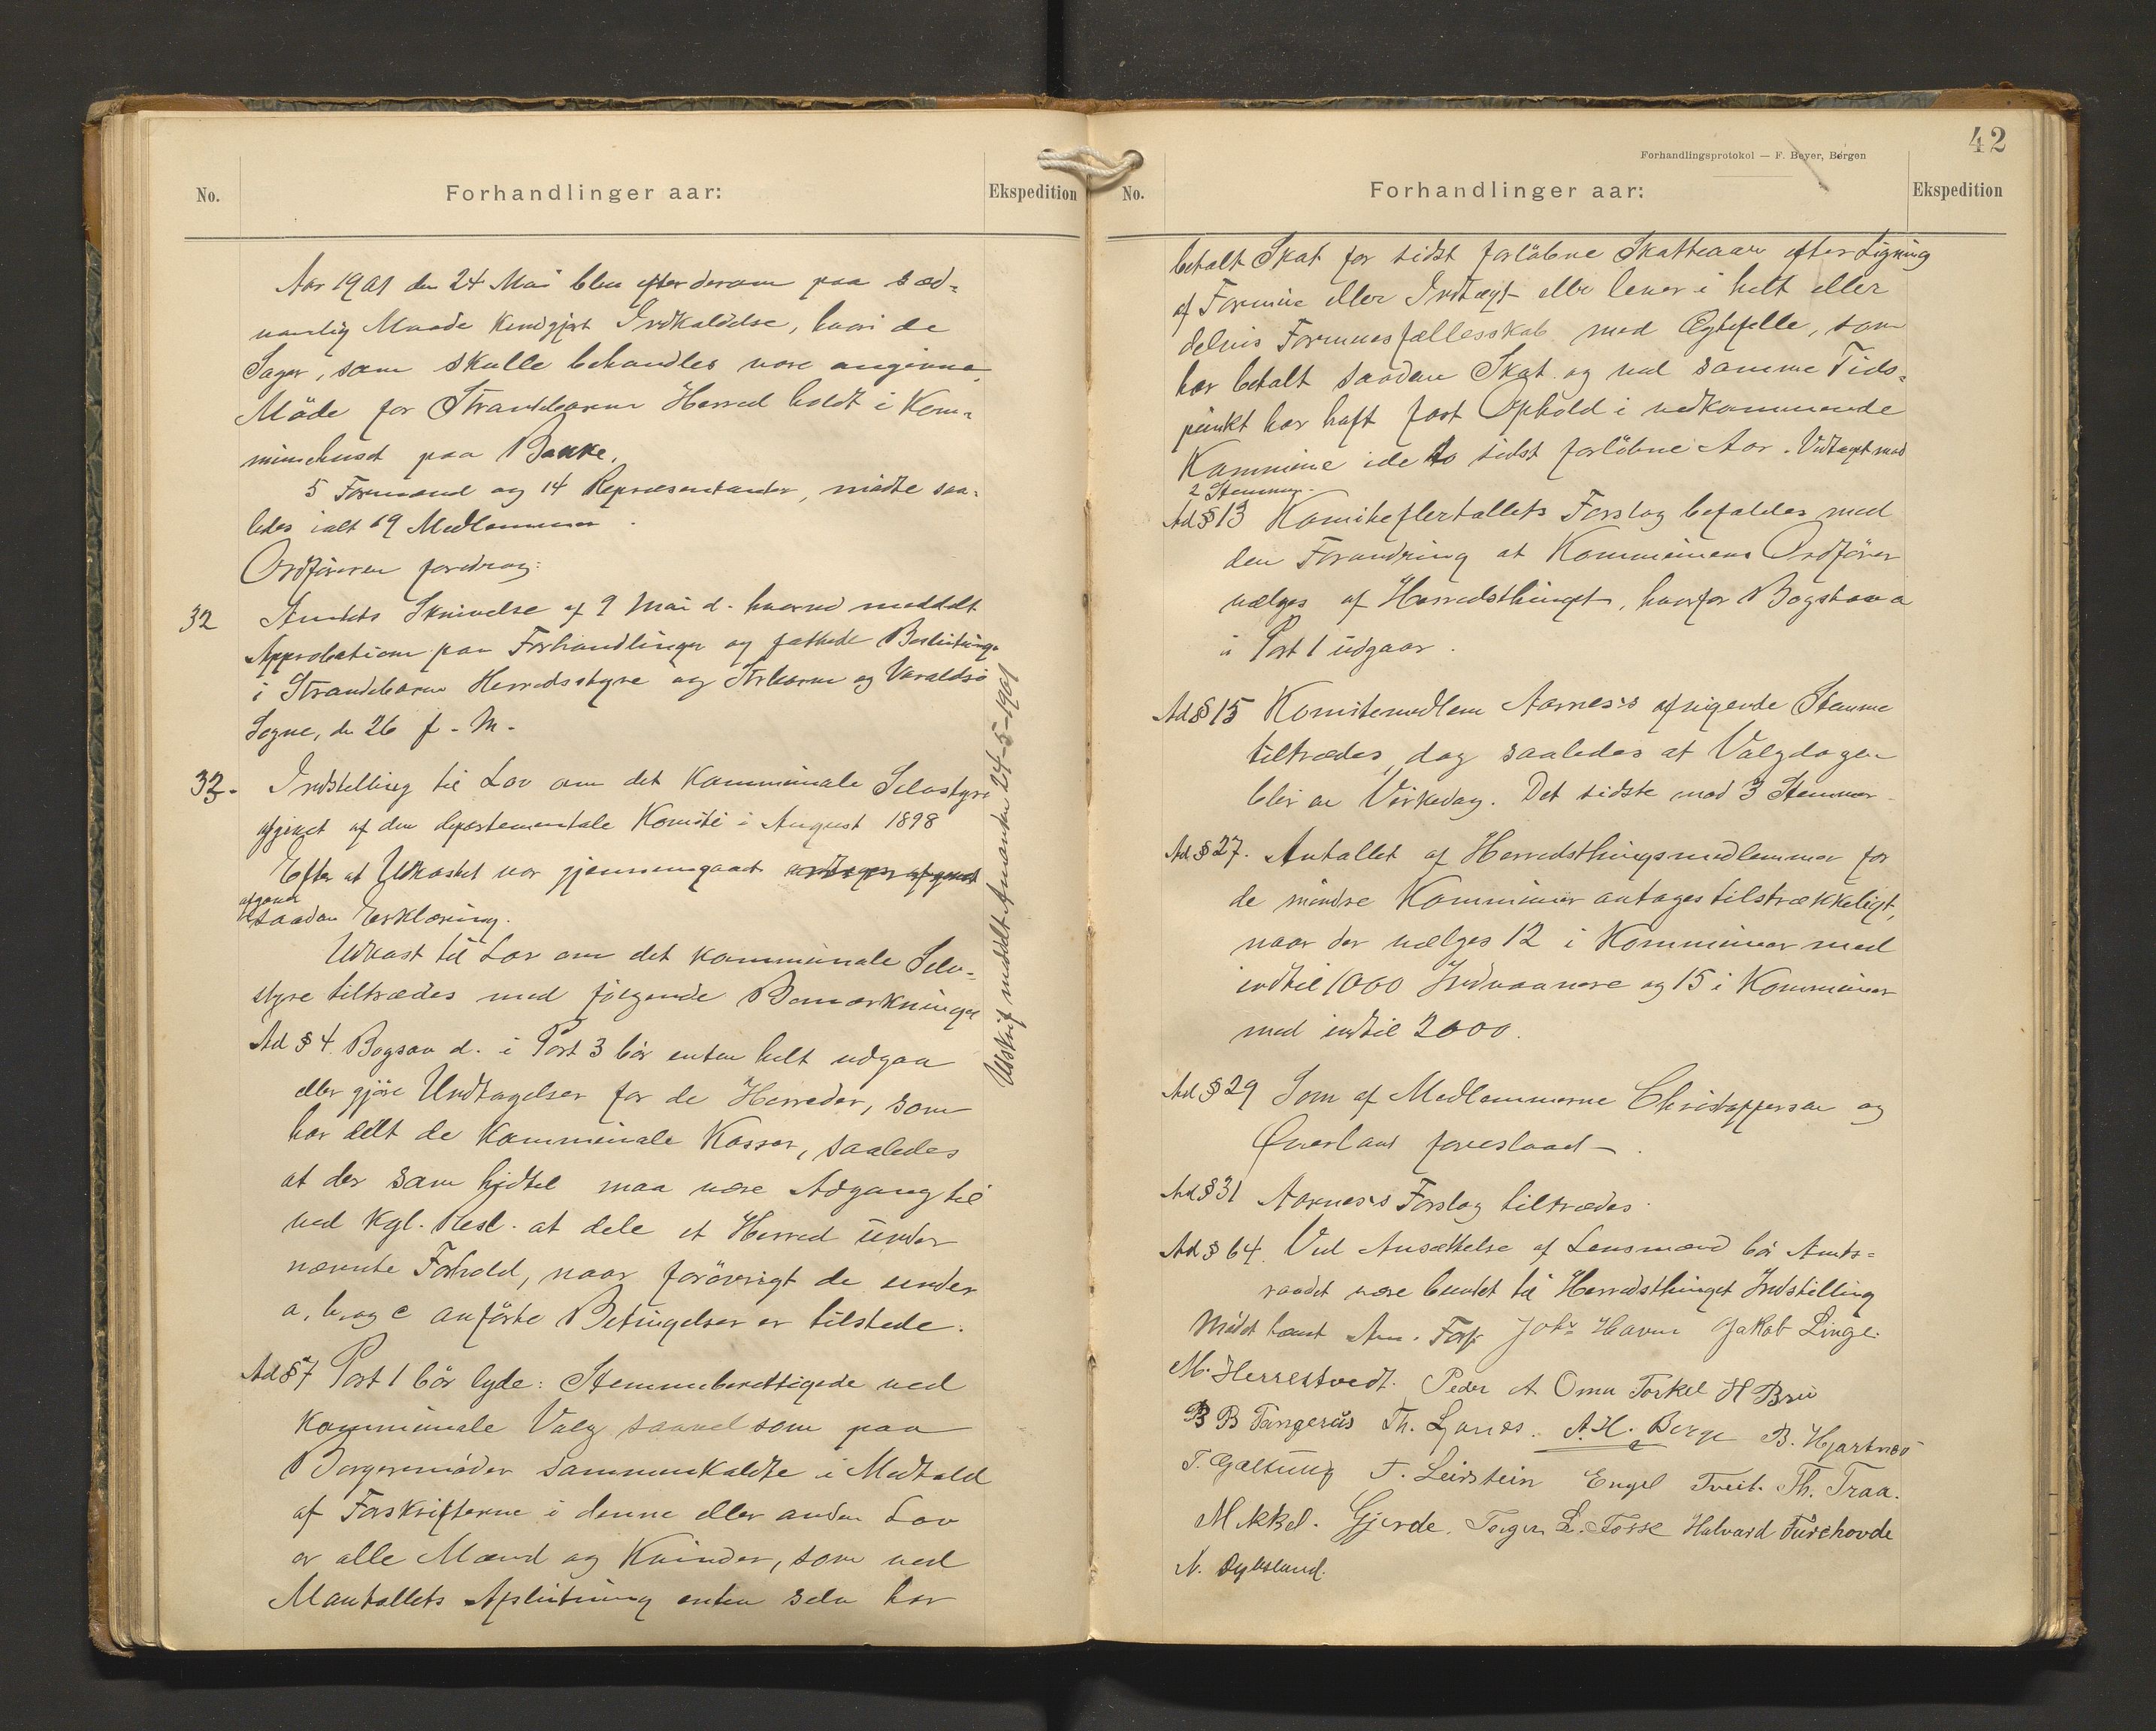 No.
Forhandlinger aar:
Ekspedition
Aar 1901 den 24 Mai blev efter derom paa sæd-
vanlig Maade kundgjort Indkaldelse, hvori de
Sager, som skulle behandles vare angivne,
Möde for Strandebarm Herred holdt i Kom-
munehuset paa Bakke.
5 Formænd og 14 Repræsentanter, mödte saa-
ledes ialt 19 Medlemmer.
Ordföreren foredrog:
32 Amtets Skrivelse af 9 Mai d. hvorved meddelt
Approbation paa Forhandlinger og fattede Beslutninge
i Strandebarm Herredsstyre og Strbarm og Varaldsö
Sogne, den 26 f. M.
33. Indstilling til Lov om det kommunale Selvstyre
afgivet af den departementale Komite i August 1898
Efter at Udkastet var gjennemgaaet
afgaves
saadan Erklæring.
Udkast til Lov om det kommunale Selv-
styre tiltrædes med fölgende Bemærkninger
Ad § 4. Bogsav d. i Post 3 bör enten helt udgaa
eller gjöre Undtagelser for de Herreder, som
har delt de kommunale Kasser, saaledes
at der som hidtil maa være Adgang til
ved Kgl. Resl. at dele et Herred under
nævnte Forhold, naar forövrigt de under
a, b, og c anförte Betingelser er tilstede.
Ad § 7 Post 1 bör lyde: Stemmeberettigede ved
kommunale Valg saavel som paa
Borgermöder sammenkaldte i Medhold
af Forskrifterne i denne eller anden Lov
er alle Mænd og Kvinder, som ved
Mantallets Afslutning enten selv har
Udskrift meddelt Amanden 24-5-1901
Forhandlingsprotokol — F. Beyer, Bergen
42
No.
Forhandlinger aar:
Ekspedition
betalt Skat for sidst forlöbne Skatteaar efter Ligning
af Formue eller Indtægt eller lever i helt eller
delvis Formuesfællesskab med Ægtefelle, som
har betalt saadan Skat og ved samme Tids-
punkt har haft fast Ophold i vedkommende
Kommune i de to sidst forlöbne Aar. Vedtaget mod
2 Stemmer.
Ad § 13 Komiteflertallets Forslag befaldes med
den Forandring at Kommunens Ordförer
vælges af Herredsthinget, hvorfor Bogstav a
i Post 1 udgaar.
Ad § 15 Komitemedlem Aarnes's afvigende Stemme
tiltrædes, dog saaledes at Valgdagen
blir en Virkedag. Det sidste mod 3 Stemmer
Ad § 27. Antallet af Herredsthingsmedlemmer for
de mindre Kommuner antages tilstrækkeligt,
naar der vælges 12 i Kommuner med
indtil 1000 Indvaanere og 15 i Kommuner
med indtil 2000.
Ad § 29 Som af Medlemmerne Christoppersen og
Qverland foreslaaet.
Ad § 31 Aarnes's Forslag tiltrædes.
Ad § 64. Ved Ansættelse af Lensmænd bör Amts-
raadet være bundet til Herredsthinget Indstilling
Mödet hævet Joh. Havn Jakob Linge.
M. Herrestvedt. Peder A Oma Torkel H Bru
B B Tangerås Th. Ljones. A. H. Berge B. Hjartnes
T. Galtung T. Leirstein Engel Tveit. Th. Traa.
Mikkel. Gjerde. Torger L. Fosse Halvard Furehovde
N. Dybsland.